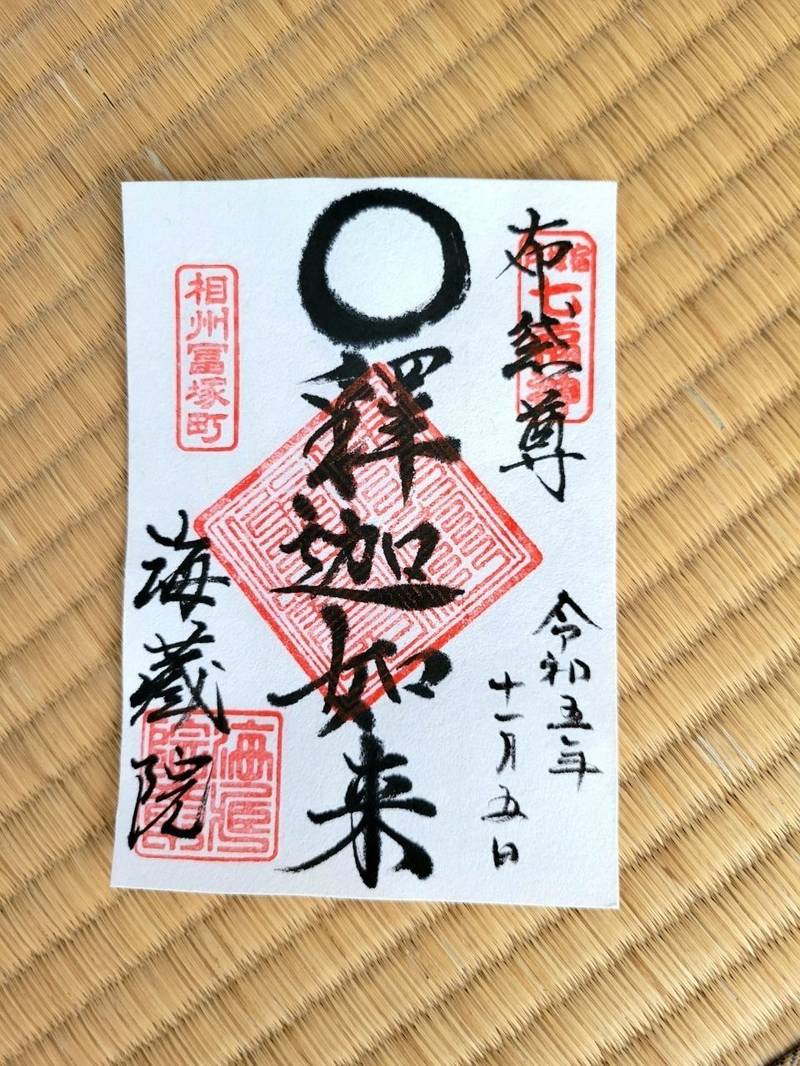 布袋尊
七福神
令和五年
十一月五日
釋迦如来
相州冨塚町
海蔵院